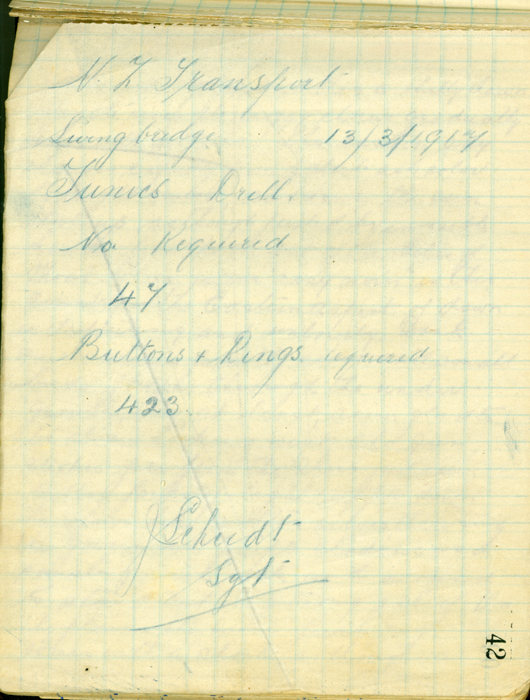 N. Z Transport
Swing bridge 13/3/1917
Tunics Drill.
No Required
47
Buttons + Rings required
423.
Sgt
42